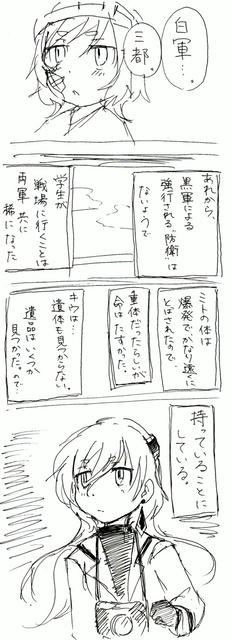 白軍…。
三都。
あれから、
黒軍による
強行される"防衛"は
ないようで
学生が
戦場に行くことは
両軍 共に
稀になった
ミトの体は
爆発で、かなり遠くに
とばされたので
重体だったらしいが
命は たすかった。
キウは…
遺体も見つからない。
遺品はいくつか
見つかったので…
持っていることに
している。